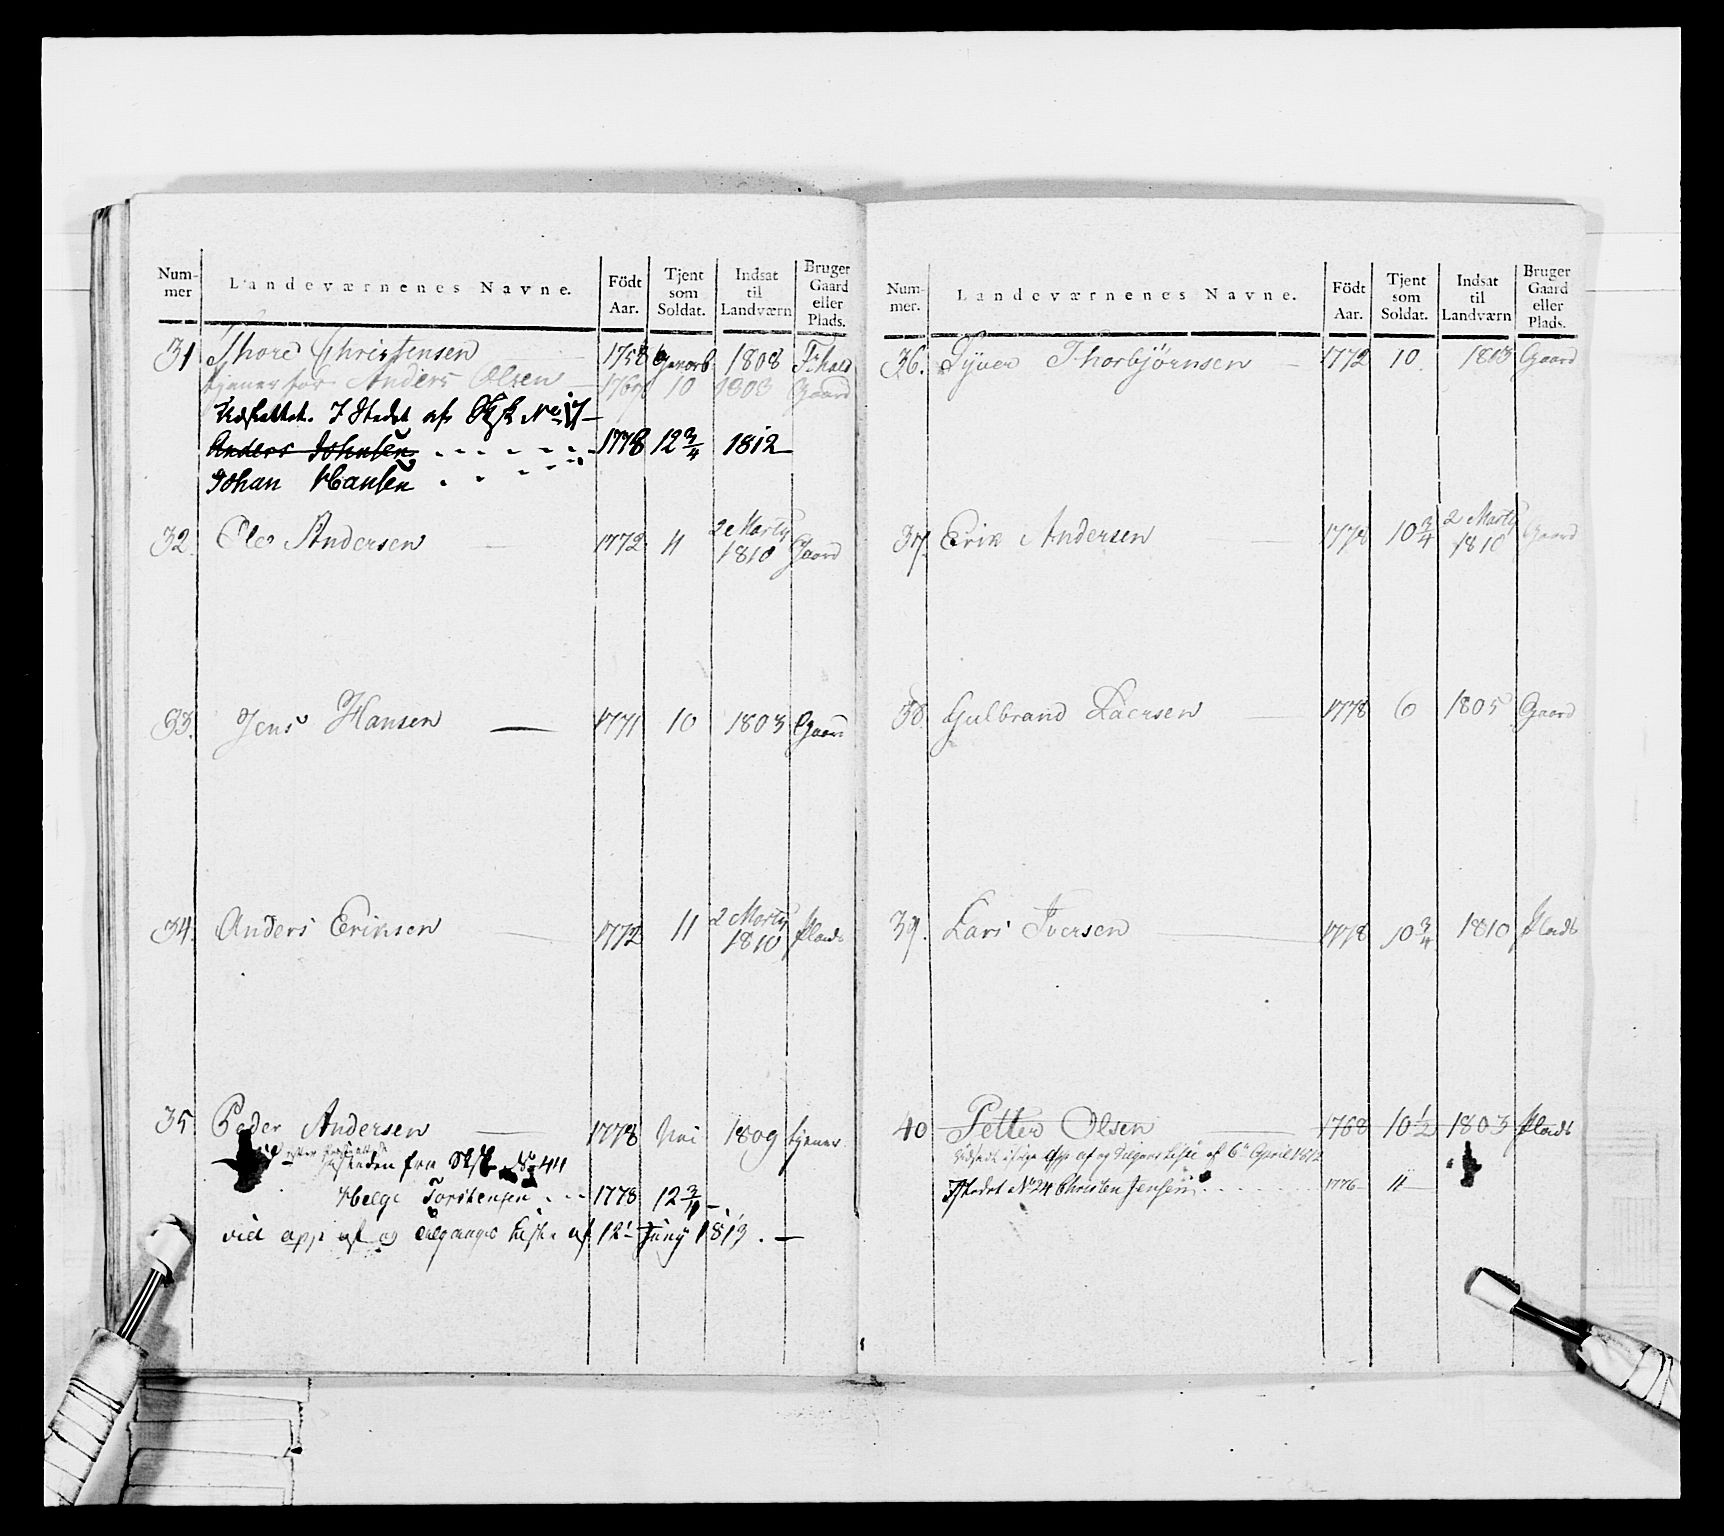 Num-
mer
Landeværnenes Navne.
Födt
Aar.
Tjent
som
Soldat.
Indsat
til
Landværn
Bruger
Gaard
eller
Plads.
31 Thore Christensen 1758 1808
tjener for Anders Olsen 10 1803 Gaard
Udsattet. I Stedet af No 17
Anders Johnsen 1778 12 3/4 1812
Johan Hansen
32. Ole Andersen 1772 11 2 Marty 1810 Gaard
33. Jens Hansen — 1771 10 1803 Gaard
34. Anders Eriksen 1772 11 2 Marty 1810 Plads
35 Peder Andersen 1778 Nei 1809 tjener
fra No 44
Helge Torstensen 1778 12
vid app af og Tilgangs Liste af 12 Juny 1813. —
Num-
mer.
Landeværnenes Navne.
Födt
Aar.
Tjent
som
Soldat.
Indsat
til
Landværn
Bruger
Gaard
eller
Plads.
36. Syver Thorbjørnsen — 1772 10. 1803 Gaard
37. Erik Andersen 1778 10 3/4 2 Marty 1810 Gaard
38. Gulbrand Laersen 1778 6 1805 Gaard
39. Lars Iversen 1778 10 3/4 1810 Plads
40 Petter Olsen 1768 10 1/2 1803 Plads
Udsadt ifølge app af og Tilgans Liste af 6 April 1812
Istedet No 24 Christen Jensen 1776 11